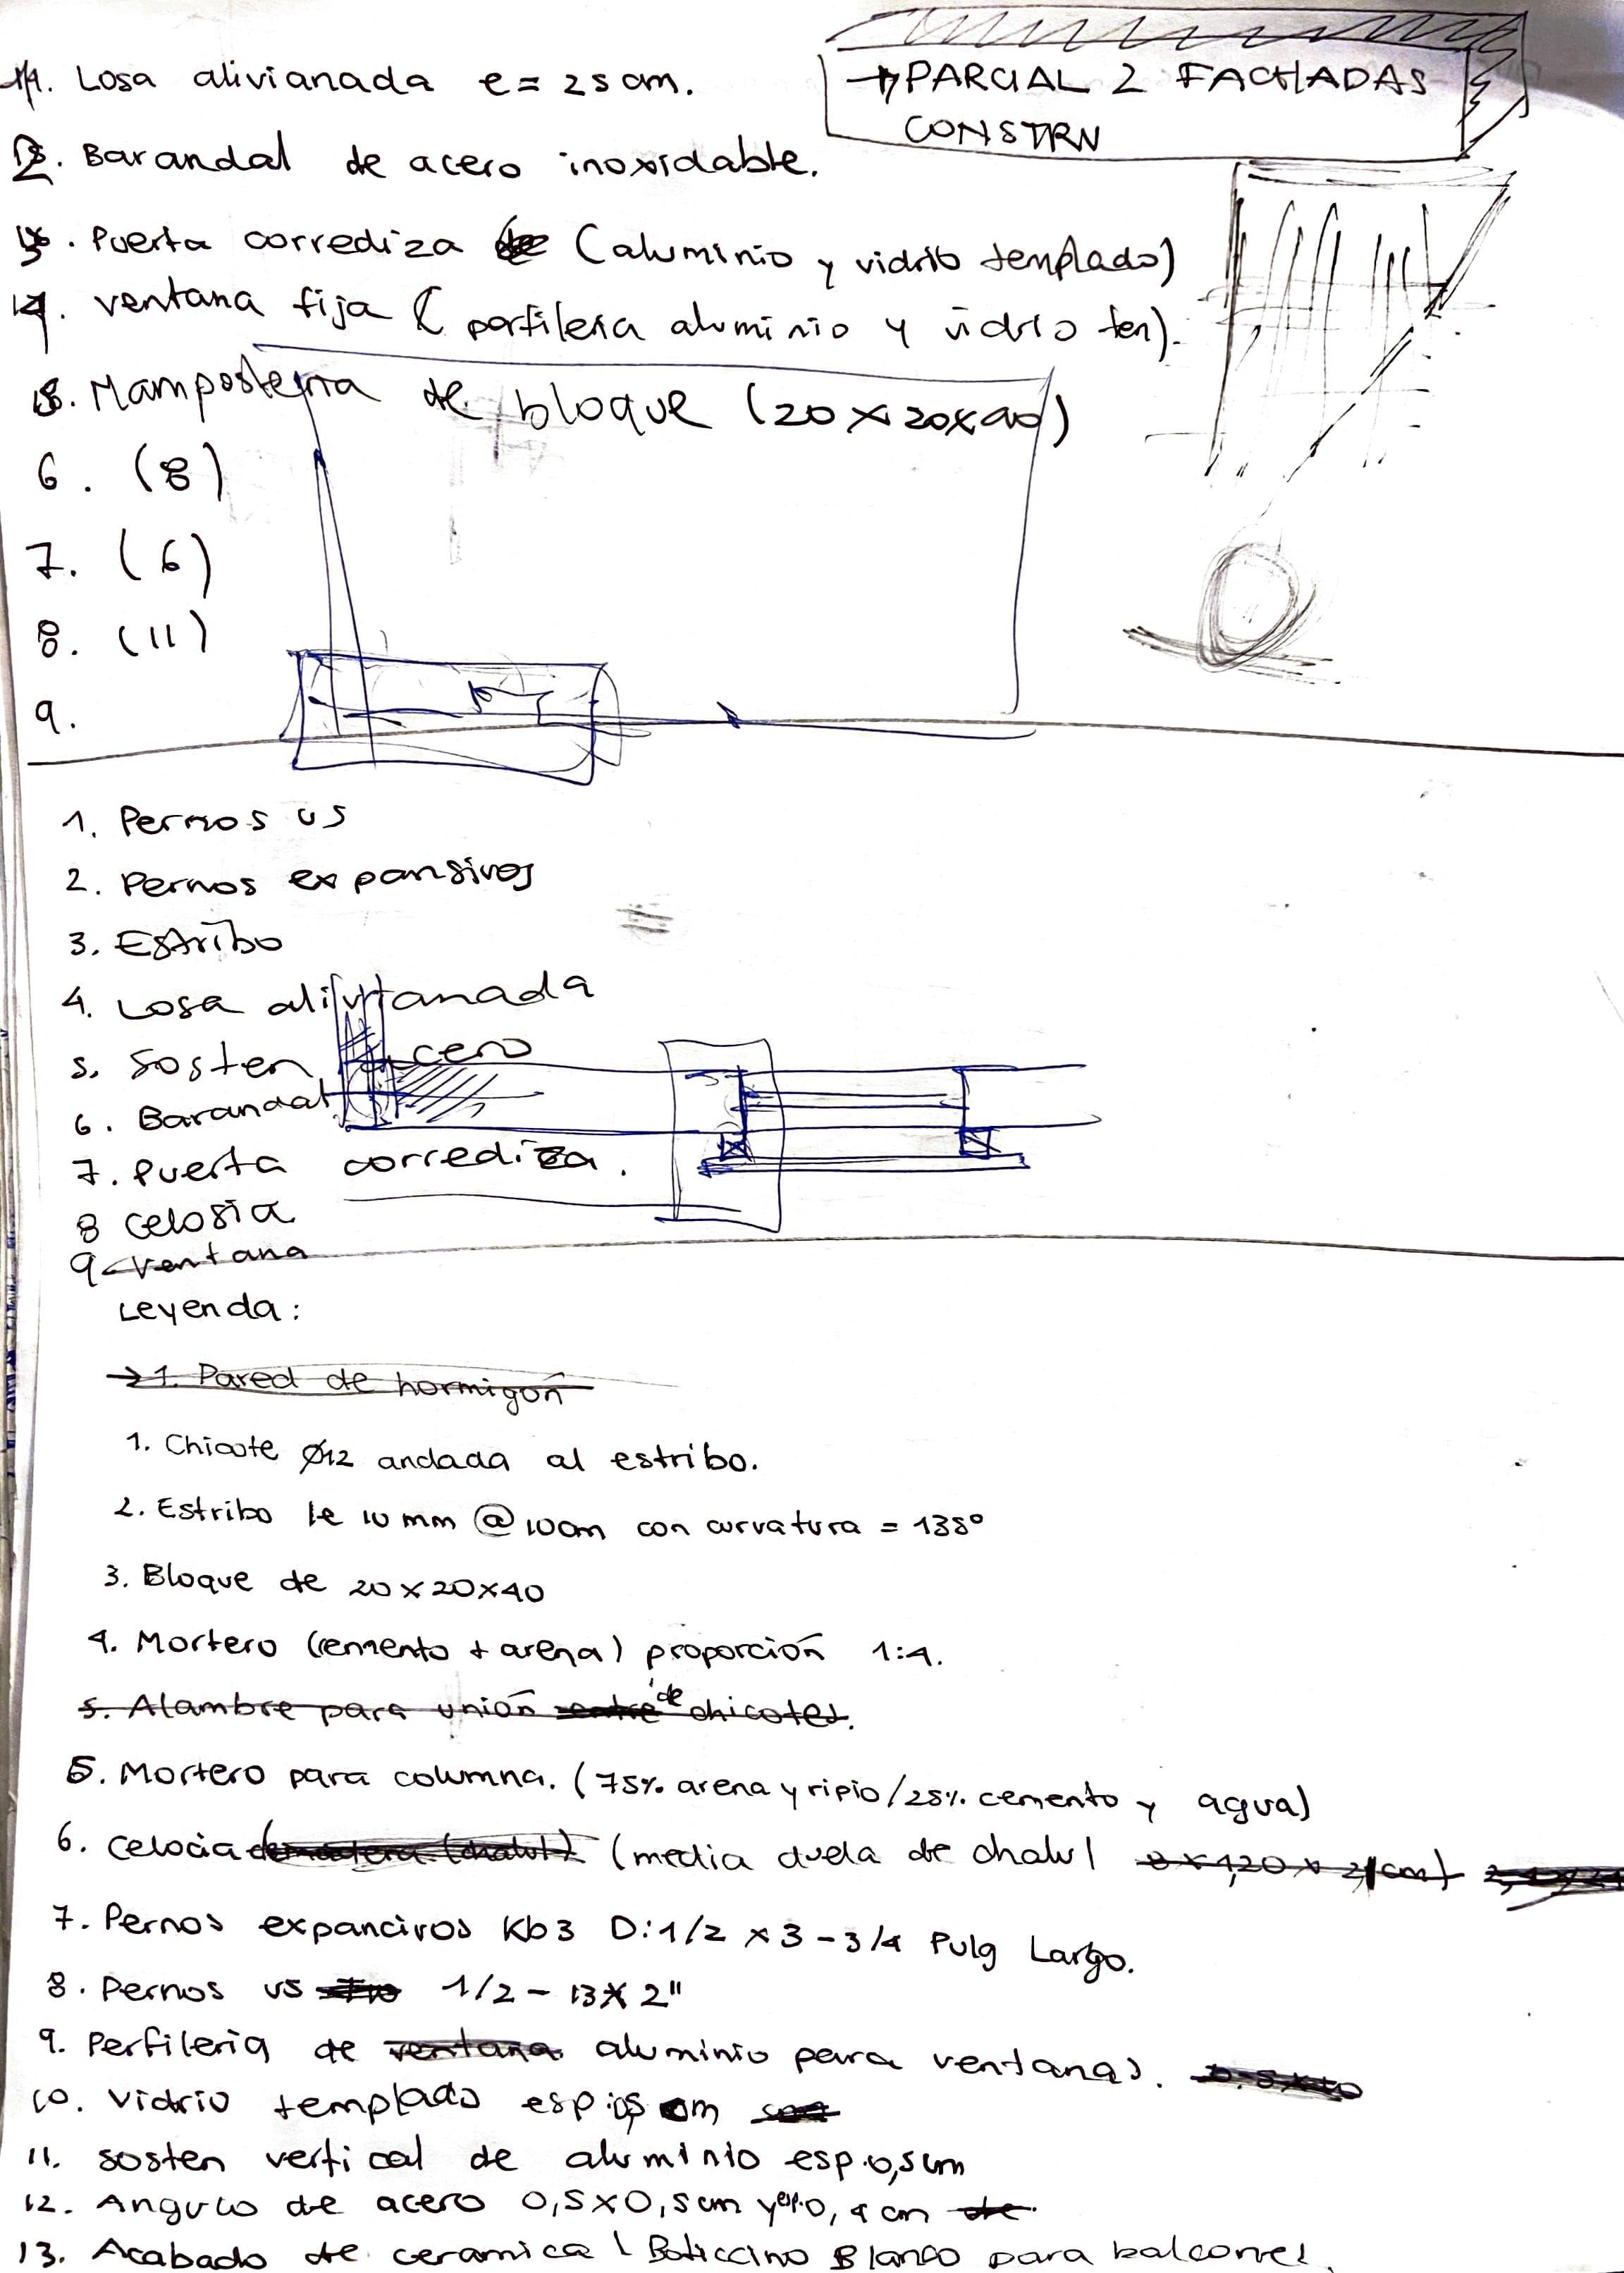 → PARCIAL 2 FACHADAS
CONSTRN
1. Losa alivianada e= 25 cm.
2. Barandal de acero inoxidable.
3. Puerta corrediza (aluminio y vidrio templado)
4. ventana fija ( perfileria aluminio y vidrio ten).
5. Mamposteria de bloque (20 x 20x40)
6. (8)
7. (6)
8. (11)
9.
1. Pernos us
2. Pernos expansivos
3. Estribo
4. Losa alivianada
5. Sosten acero
6. Barandal
7. Puerta corrediza.
8 celosia
9 ventana
Leyenda:
→ 1. Pared de hormigón
1. Chicote Ø12 anclada al estribo.
2. Estribo de 10 mm @ 10cm con curvatura = 135°
3. Bloque de 20 x 20 x 40
4. Mortero (cemento + arena) proporción 1:4.
5. Alambre para unión entre de chicotes.
5. Mortero para columna. (75% arena y ripio/25% cemento y agua)
6. celocia (media duela de chalul 8 x 1,20 x
7. Pernos expancivos Kb3 D: 1/2 x 3 - 3/4 Pulg Largo.
8. Pernos us 1/2 - 13 x 2"
9. Perfileria de ventana aluminio para ventanas.
10. Vidrio templado esp:
11. sosten vertical de aluminio esp. 0,5cm
12. Angulo de acero 0,5 x 0,5 cm y esp. 0,4 cm de
13. Acabado de ceramica Boticcino Blanco para balcones.